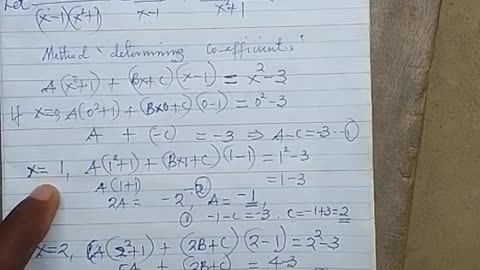 Let
(x-1)(x²+1) x-1 x²+1
Method "determining Co-efficients"
A(x²+1) + (Bx+C)(x-1) = x²-3
If x=0, A(0²+1) + (Bx0+C)(0-1) = 0²-3
A + (-C) = -3 ⇒ A-C=-3 -①
x=1, A(1²+1) + (Bx1+C)(1-1) = 1²-3
A(1+1) = 1-3
2A = -2, -② A = -1,
① -1-C=-3, C=-1+3=2
x=2, A(2²+1) + (2B+C)(2-1) = 2²-3
5A + (2B+C) = 4-3